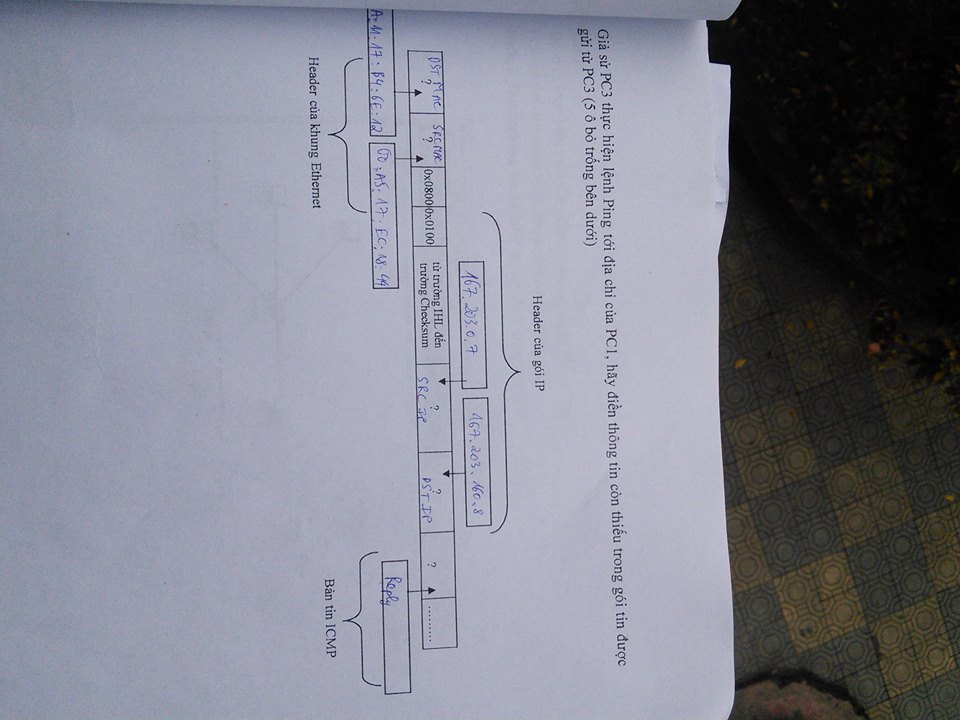 Giả sử PC3 thực hiện lệnh Ping tới địa chỉ của PC1, hãy điền thông tin còn thiếu trong gói tin được
gửi từ PC3 (5 ô bỏ trống bên dưới)
Header của gói IP
167.203.0.7
167.203.160.8
DST MAC
?
SRC MAC
?
0x0800
0x0100
từ trường IHL đến
trường Checksum
?
SRC IP
?
DST IP
?
..........
A:11:17:B4:6E:12
00:A5:17:EC:18:44
Reply
Header của khung Ethernet
Bản tin ICMP